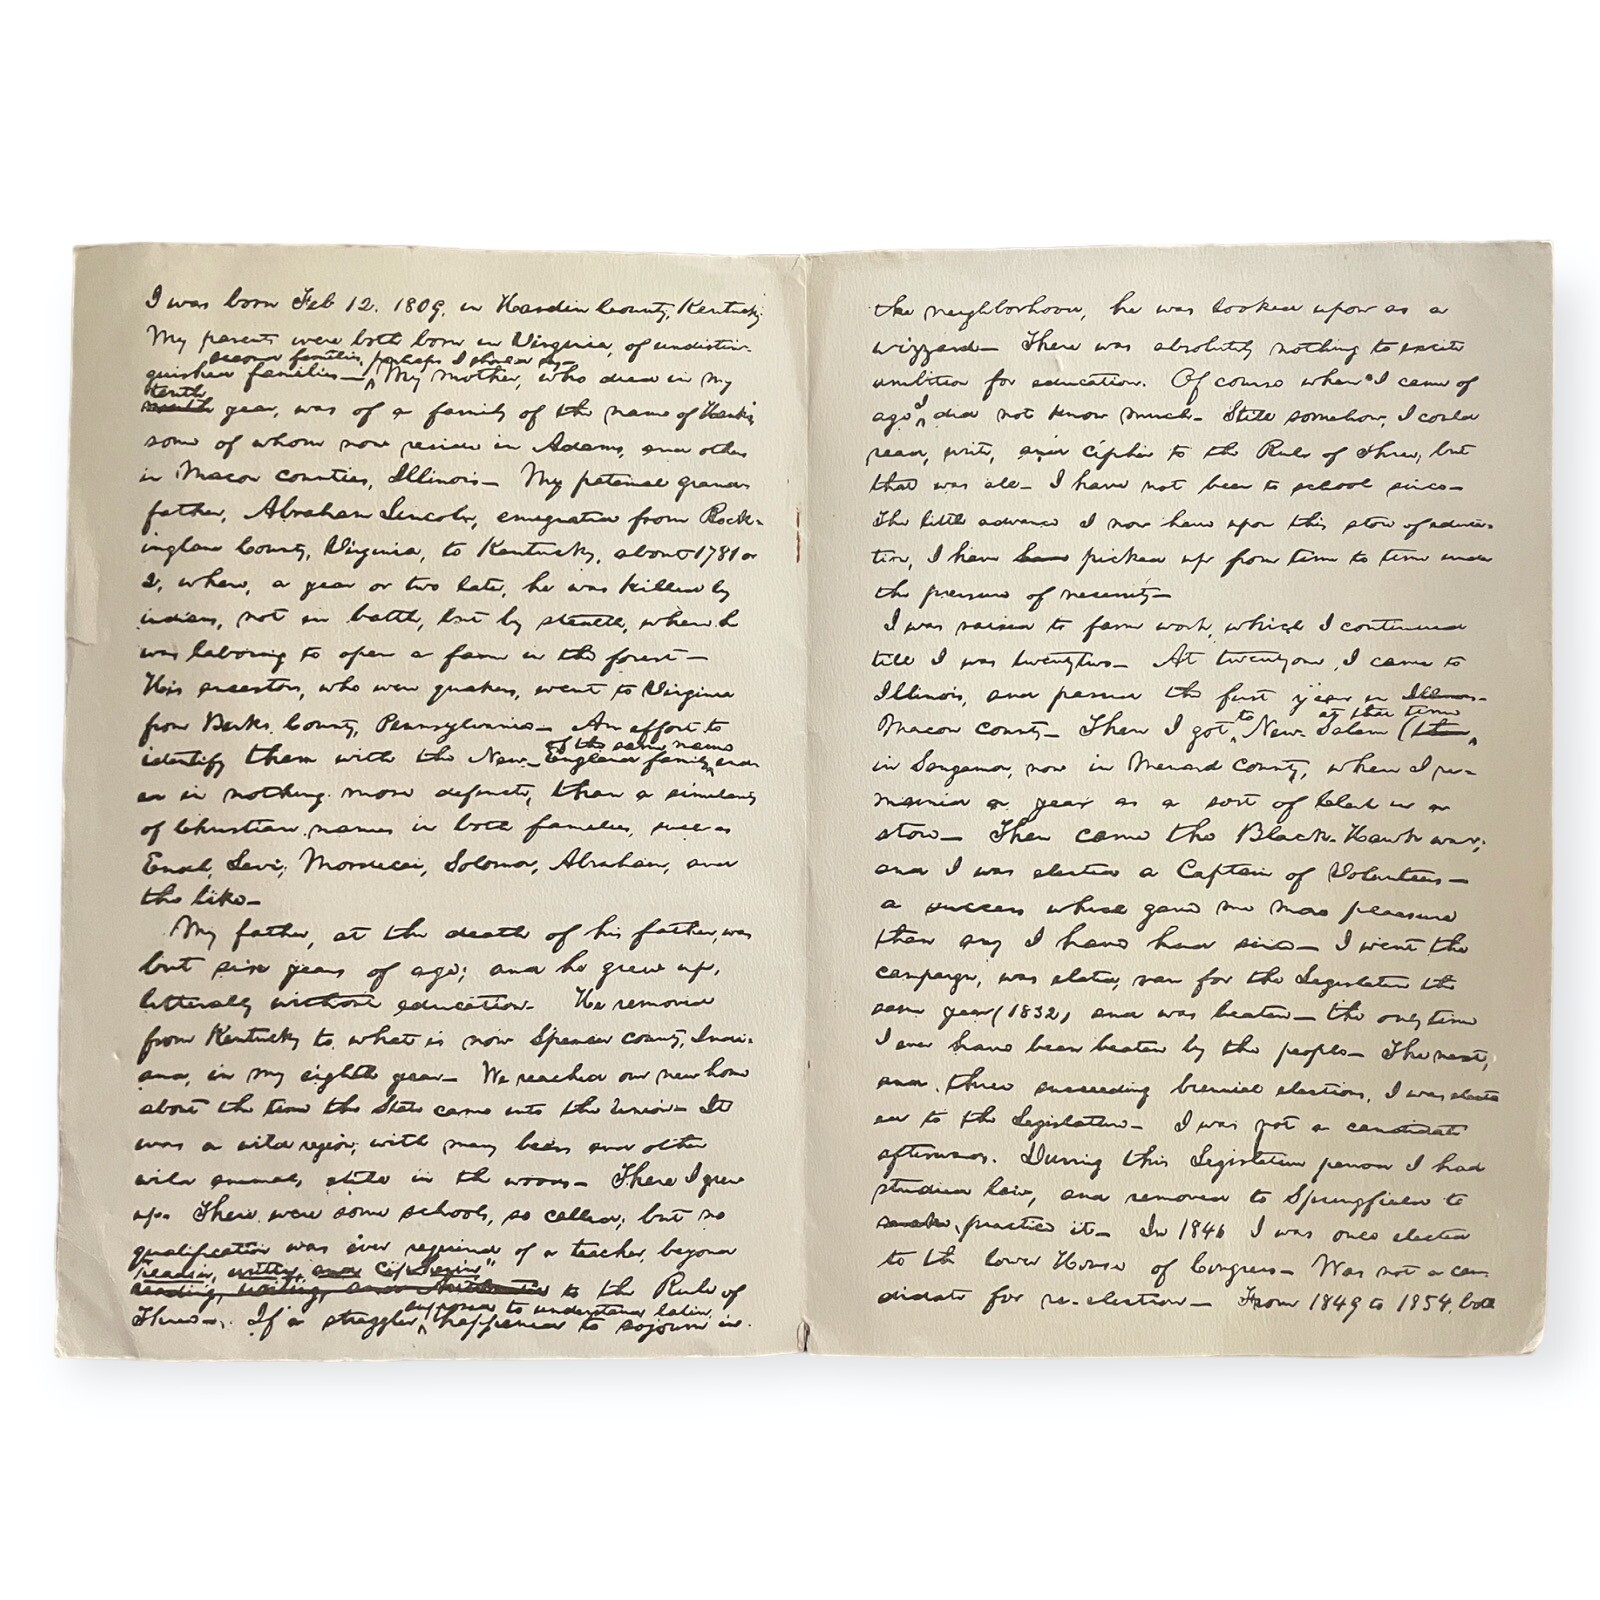 I was born Feb 12. 1809, in Hardin County, Kentucky.
My parents were both born in Virginia, of undistin-
second families, perhaps I should say—
guished families— My mother, who died in my
tenth
ninth year, was of a family of the name of Hanks,
some of whom now reside in Adams, and others
in Macon counties, Illinois— My paternal grand-
father, Abraham Lincoln, emigrated from Rock-
ingham County, Virginia, to Kentucky, about 1781 or
2, where, a year or two later, he was killed by
indians, not in battle, but by stealth, when he
was laboring to open a farm in the forest—
His ancestors, who were quakers, went to Virginia
from Berks County, Pennsylvania— An effort to
of the same name
identify them with the New-England family end-
ed in nothing more definite, than a similarity
of Christian names in both families, such as
Enoch, Levi, Mordecai, Solomon, Abraham, and
the like—
My father, at the death of his father, was
but six years of age; and he grew up,
litterally without education. He removed
from Kentucky to what is now Spencer county, Indi-
ana, in my eighth year— We reached our new home
about the time the State came into the Union— It
was a wild region, with many bears and other
wild animals, still in the woods— There I grew
up. There were some schools, so called; but no
qualification was ever required of a teacher, beyond
"readin, writin, and cipherin"
reading, writing, and Arithmetic to the Rule of
supposed to understand latin,
Three— If a straggler happened to sojourn in
the neighborhood, he was looked upon as a
wizzard— There was absolutely nothing to excite
ambition for education. Of course when I came of
I
age did not know much— Still somehow, I could
read, write, and cipher to the Rule of Three, but
that was all— I have not been to school since—
The little advance I now have upon this store of educa-
tion, I have have picked up from time to time under
the pressure of necessity—
I was raised to farm work, which I continued
till I was twentytwo— At twentyone, I came to
Illinois, and passed the first year in Illinois—
to at that time
Macon county— Then I got New-Salem (then
in Sangamon, now in Menard County, where I re-
mained a year as a sort of Clerk in a
store— Then came the Black-Hawk war;
and I was elected a Captain of Volunteers—
a success which gave me more pleasure
than any I have had since— I went the
campaign, was elated, ran for the Legislature the
same year (1832) and was beaten— the only time
I ever have been beaten by the people— The next,
and three succeeding biennial elections, I was elect-
ed to the Legislature— I was not a candidate
afterwards. During this Legislative period I had
studied law, and removed to Springfield to
make practice it— In 1846 I was once elected
to the lower House of Congress— Was not a can-
didate for re-election— From 1849 to 1854, both